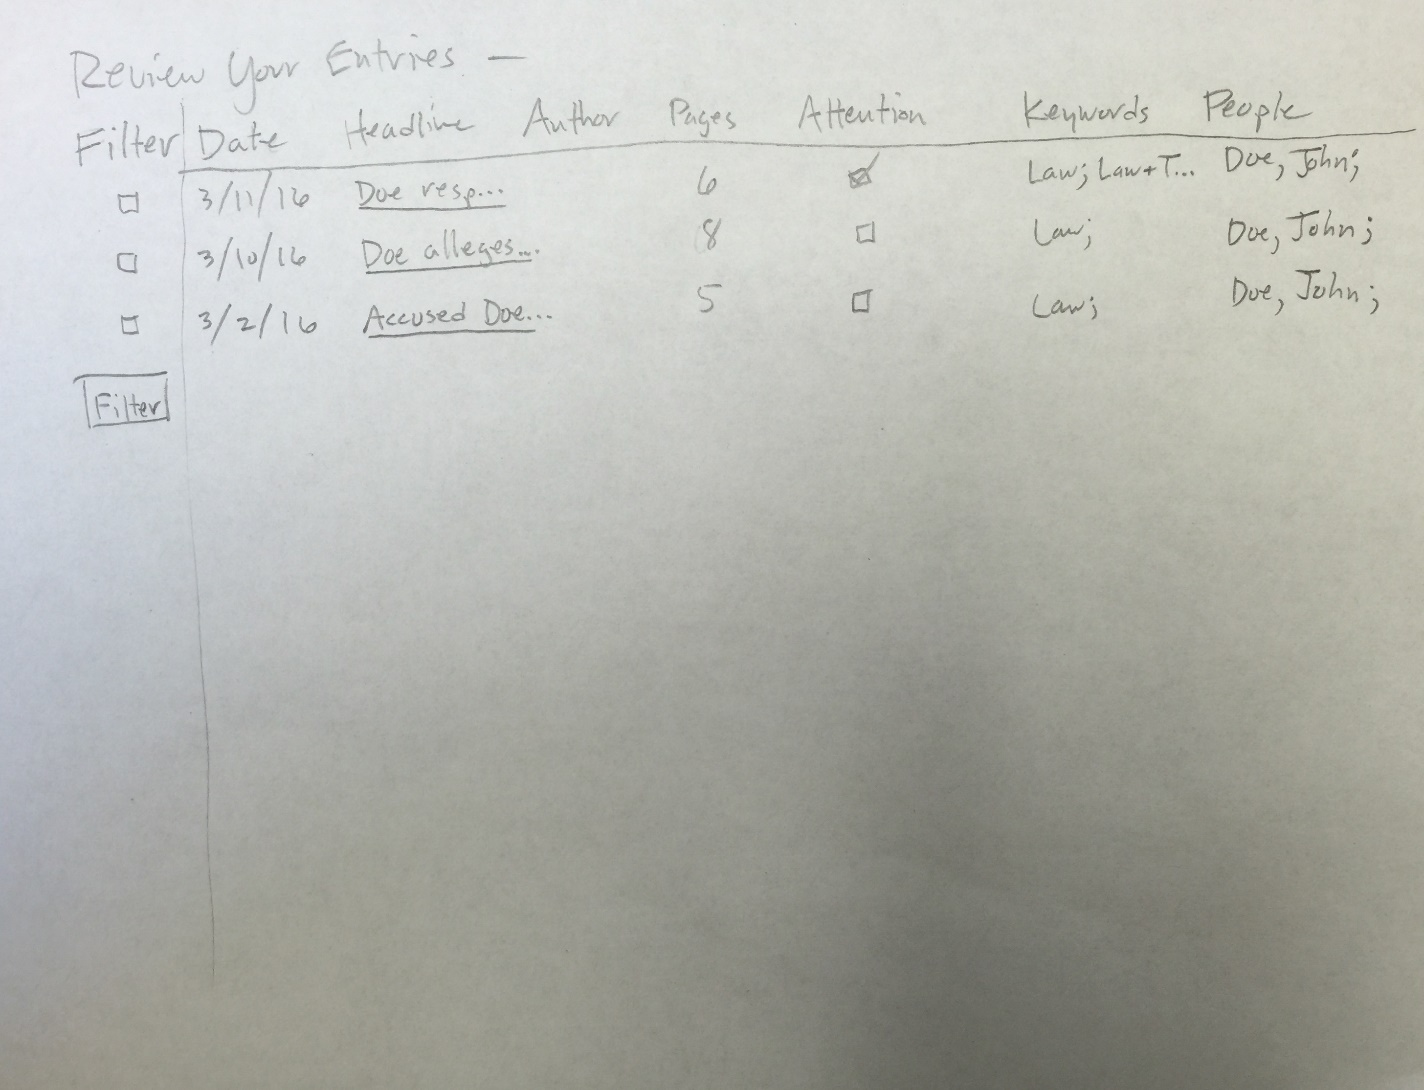 Review Your Entries —
Filter Date Headline Author Pages Attention Keywords People
3/11/16 Doe resp... 6 Law; Law+T... Doe, John;
3/10/16 Doe alleges... 8 Law; Doe, John;
3/2/16 Accused Doe... 5 Law; Doe, John;
Filter